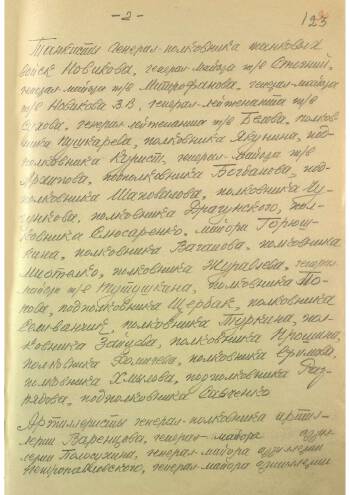 - 2 -
123
Танкисты генерал-полковника танковых
войск Новикова, генерал-майора т/в
генерал-майора т/в Митрофанова, генерал-майора
т/в Новикова В.В, генерал-лейтенанта т/в
Сухова, генерал-лейтенанта т/в Белова, полков-
ника Пушкарева, полковника Якунина, под-
полковника Курист, генерал-майора т/в
Архипова, подполковника Богданова, под-
полковника Шаповалова, полковника Чу-
гункова, полковника Драгунского, пол-
ковника Слюсаренко, майора Горюш-
кина, полковника Ваганова, полковника
полковника Журавлева, генерал
майора т/в полковника По-
пова, подполковника Щербак, полковника
Селиванчик, полковника Туркина, пол-
ковника Зайцева, полковника Ярошина,
полковника Хотимева, полковника Ермакова,
полковника Хмылова, подполковника Раз-
рядова, подполковника Савченко
Артиллеристы генерал-полковника артил-
лерии Варенцова, генерал-майора артил-
лерии Полосухина, генерал-майора артиллерии
Непропалковского, генерал-майора артиллерии